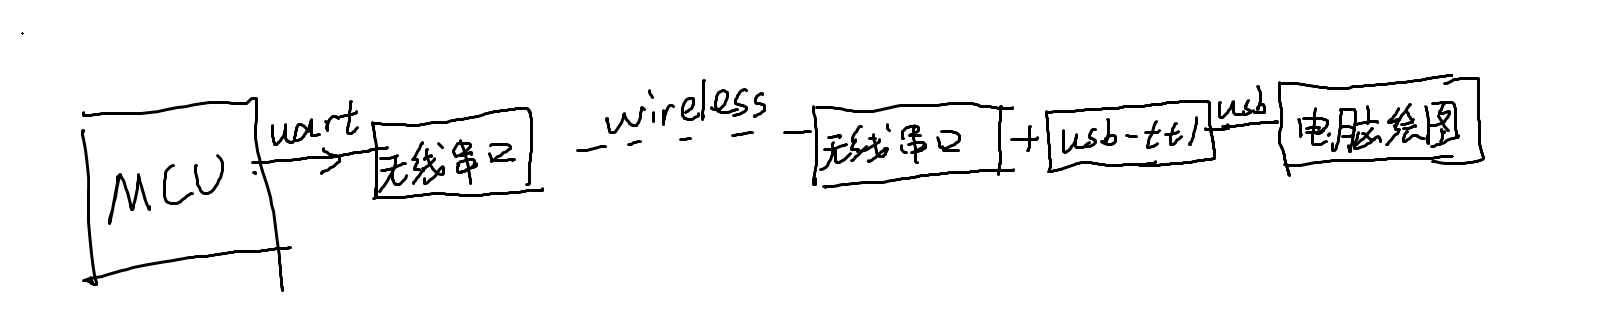 MCU
uart
无线串口
wireless
无线串口
+
usb-ttl
usb
电脑绘图